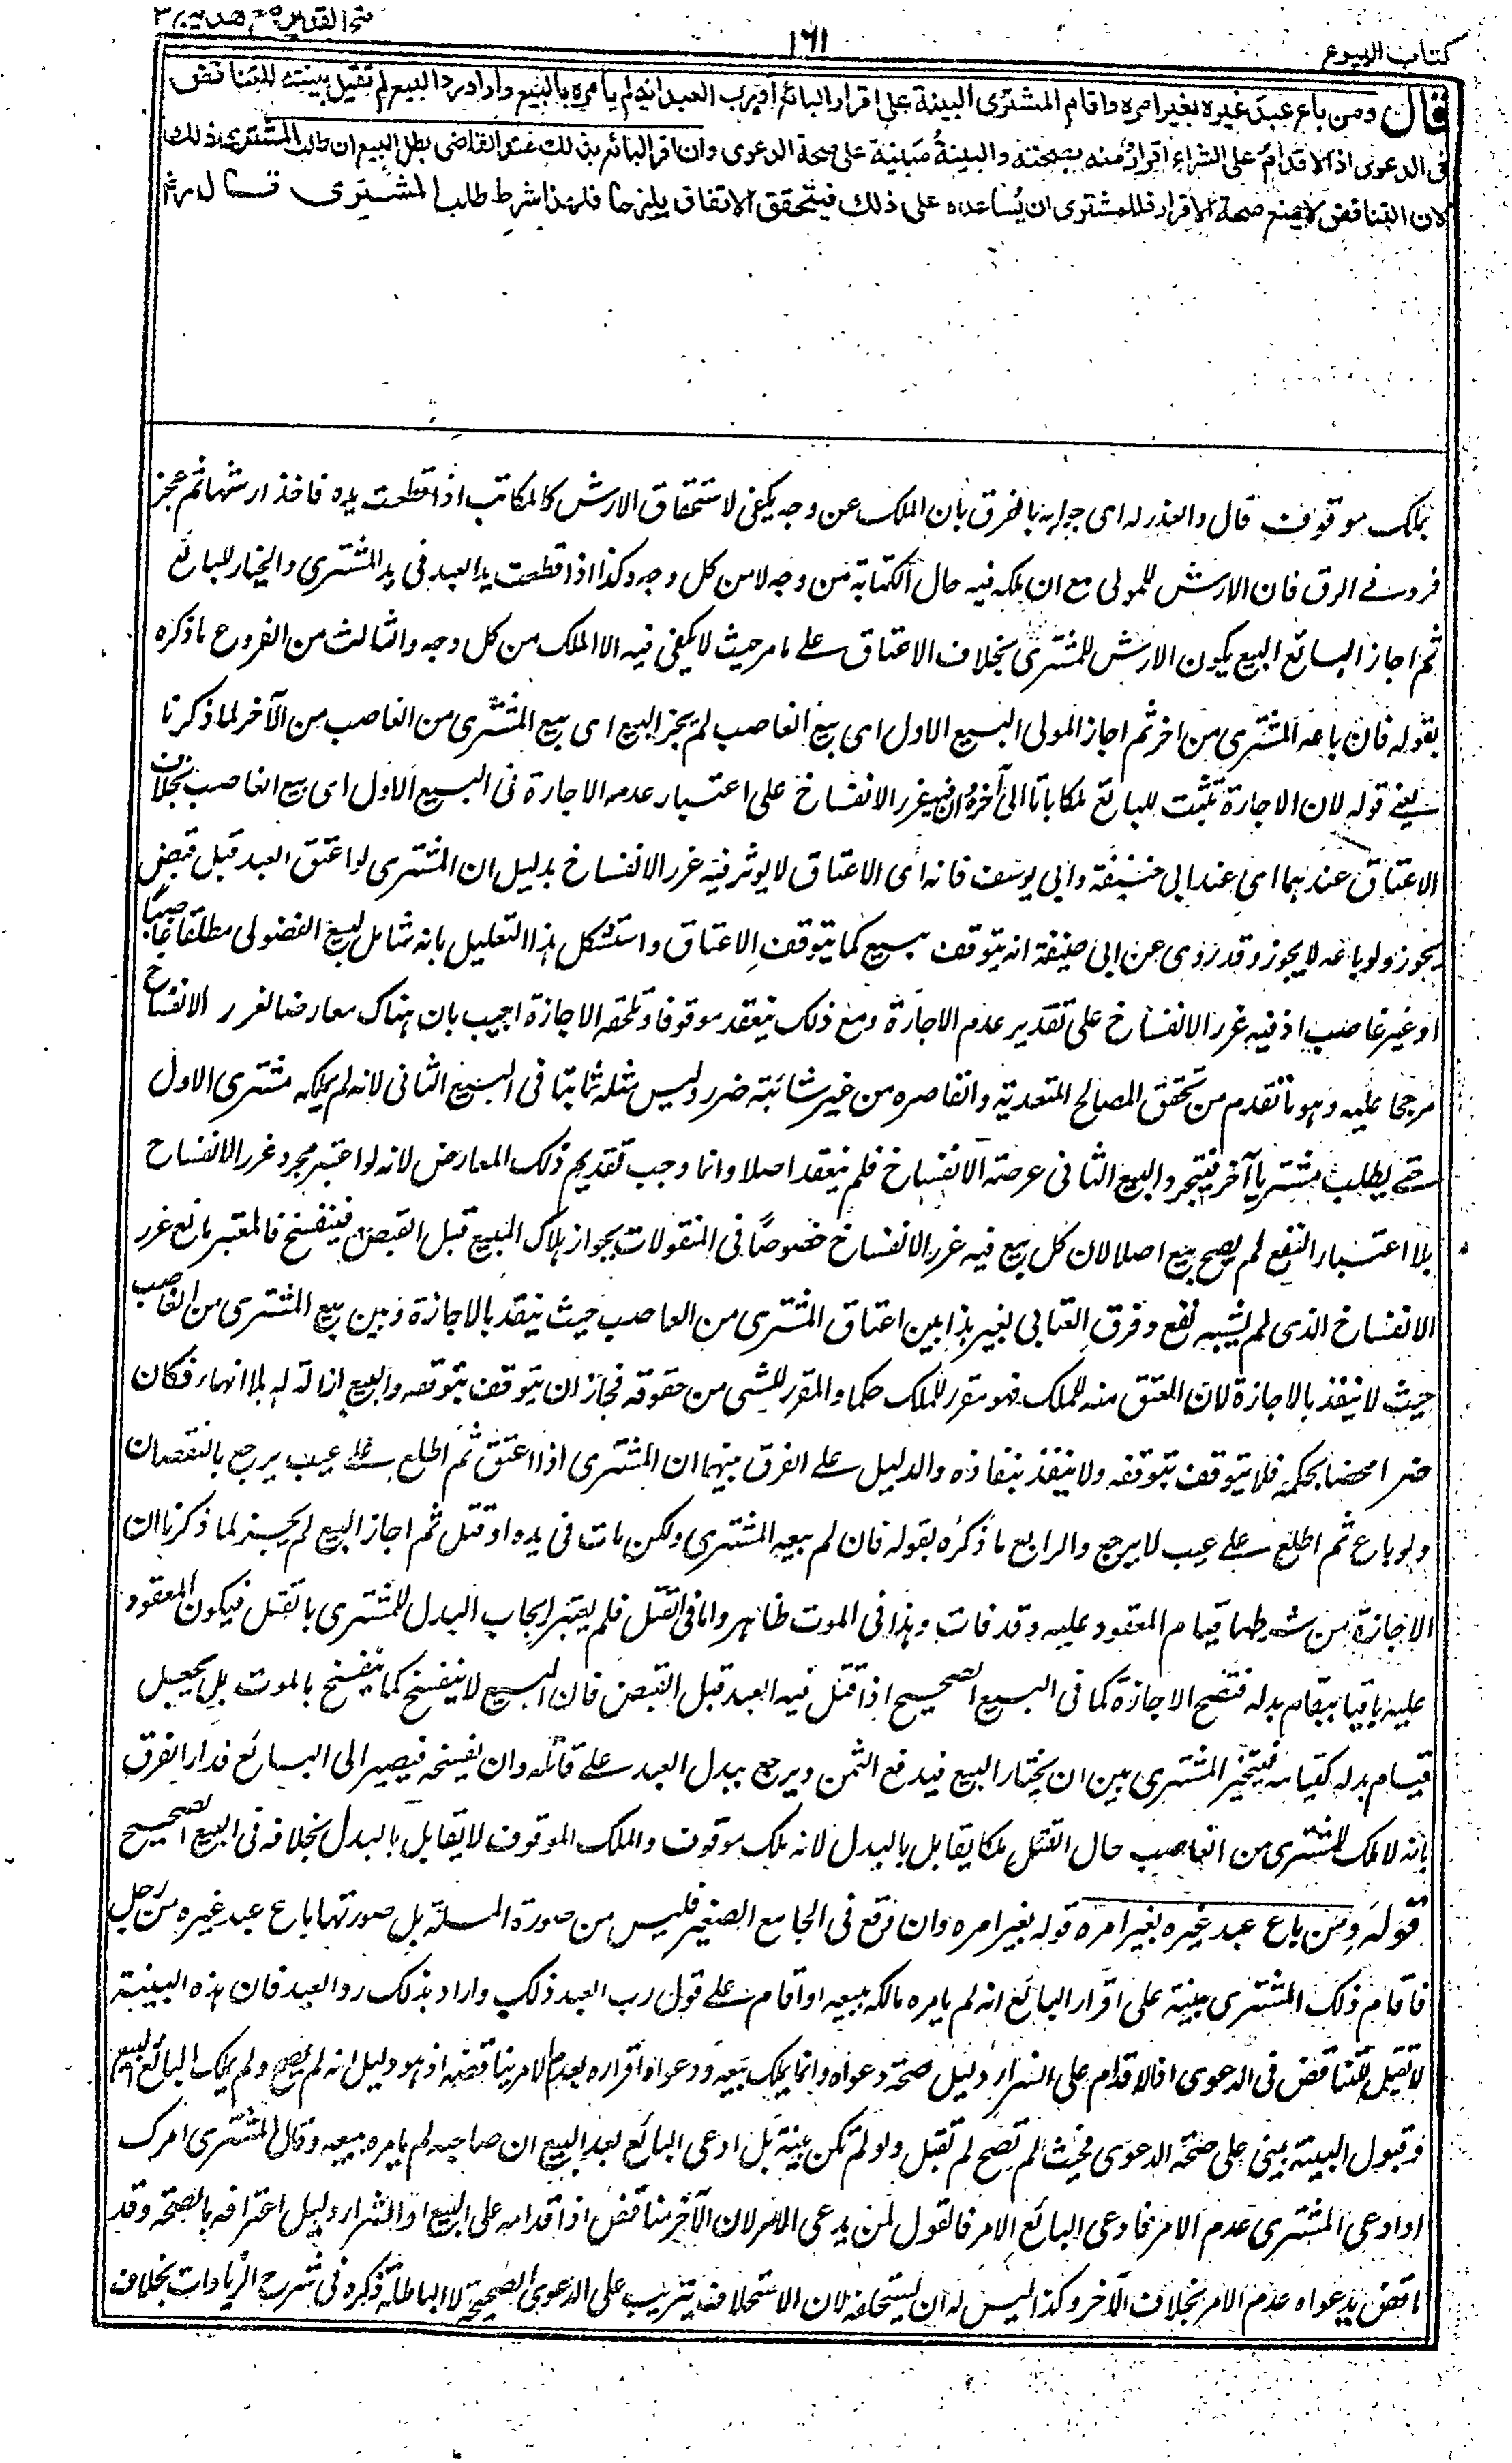 كتاب البيوع ١٦١ فتح القدير مع هدايه ج٣
قال ومن باع عبد غيره بغير امره واقام المشترى البينة على اقرار البائع او رب العبد انه لم يأمره بالبيع واراد رد البيع لم تقبل بينته للتناقض
فى الدعوى اذ الاقدام على الشراء اقرار منه بصحته والبينة مبنية على صحة الدعوى وان اقر البائع بذلك عند القاضى بطل البيع ان طلب المشترى ذلك
لان التناقض لا يمنع صحة الاقرار فللمشترى ان يساعده على ذلك فيتحقق الاتفاق بينهما فلهذا شرط طلب المشترى قال رضى
بملك موقوف قال والعذر له اى جوابه بالفرق بان الملك من وجه يكفى لاستحقاق الارش كالمكاتب اذا قطعت يده فاخذ ارشها ثم عجز
فرد فى الرق فان الارش للمولى مع ان ملكه فيه حال الكتابة من وجه لا من كل وجه وكذا اذا قطعت يد العبد فى يد المشترى والخيار للبائع
ثم اجاز البائع البيع يكون الارش للمشترى بخلاف الاعتاق على ما مر حيث لا يكفى فيه الا الملك من كل وجه والثالث من الفروع ما ذكره
بقوله فان باعه المشترى من اخر ثم اجاز المولى البيع الاول اى بيع الغاصب لم يجز البيع اى بيع المشترى من الغاصب من الآخر لما ذكرنا
يعنى قوله لان الاجازة تثبت للبائع ملكا باتا الى آخره ان فيه غرر الانفساخ على اعتبار عدم الاجازة فى البيع الاول اى بيع الغاصب بخلاف
الاعتاق عندهما اى عند ابى حنيفة وابى يوسف فانه اى الاعتاق لا يوثر فيه غرر الانفساخ بدليل ان المشترى لو اعتق العبد قبل قبض
يجوز ولو باعه لا يجوز وقد روى عن ابى حنيفة انه يتوقف بيعه كما يتوقف الاعتاق واستشكل هذا التعليل بانه شامل لبيع الفضولى مطلقا غاصبا
او غير غاصب اذ فيه غرر الانفساخ على تقدير عدم الاجازة ومع ذلك ينعقد موقوفا وتلحقه الاجازة اجيب بان هناك معارضا لغرر الانفساخ
مرجحا عليه وهو ما تقدم من تحقق المصالح المتعدية والقاصره من غير شائبة ضرر وليس مثله ثابتا فى البيع الثانى لانه لم يملكه مشترى الاول
حتى يطلب مشتريا آخر فيتجرد البيع الثانى عرضة الانفساخ فلم ينعقد اصلا وانما وجب تقديم ذلك المعارض لانه لو اعتبر مجرد غرر الانفساخ
بلا اعتبار النفع لم يصح بيع اصلا لان كل بيع فيه غرر الانفساخ خصوصا فى المنقولات بجواز هلاك المبيع قبل القبض فينفسخ فالمعتبر مانع غرر
الانفساخ الذى لم يشبه نفع وفرق العتابى بغير هذا بين اعتاق المشترى من الغاصب حيث ينفذ بالاجازة وبين بيع المشترى من الغاصب
حيث لا ينفذ بالاجازة لان العتق منه للملك فهو مقرر للملك حكما والمقرر للشى من حقوقه فجاز ان يتوقف بتوقفه والبيع ازالة له بلا انهاء فكان
ضرا محضا بحكمه فلا يتوقف بتوقفه ولا ينفذ بنفاذه والدليل على الفرق بينهما ان المشترى اذا اعتق ثم اطلع على عيب يرجع بالنقصان
ولو باع ثم اطلع على عيب لا يرجع والرابع ما ذكره بقوله فان لم يبعه المشترى ولكن مات فى يده او قتل ثم اجاز البيع لم يجز لما ذكرنا ان
الاجازة من شرطها قيام المعقود عليه وقد فات وهذا فى الموت ظاهر واما فى القتل فلم يعتبر ايجاب البدل للمشترى بالقتل فيكون المعقود
عليه باقيا بقيام بدله فتصح الاجازة كما فى البيع الصحيح اذا قتل فيه العبد قبل القبض فان البيع لا ينفسخ كما ينفسخ بالموت بل يجعل
قيام بدله كقيامه فيتخير المشترى بين ان يختار البيع فيدفع الثمن ويرجع ببدل العبد على قاتله وان يفسخه فيصير الى البائع فدار الفرق
بانه لا ملك للمشترى من الغاصب حال القتل ملكا يقابل بالبدل لانه ملك موقوف والملك الموقوف لا يقابل بالبدل بخلافه فى البيع الصحيح
قوله ومن باع عبد غيره بغير امره قوله بغير امره وان وقع فى الجامع الصغير فليس من صورة المسألة بل صورتها باع عبد غيره من رجل
فاقام ذلك المشترى بينة على اقرار البائع انه لم يامره مالكه ببيعه او اقام على قول رب العبد ذلك واراد بذلك رد العبد فان هذه البينة
لا تقبل للتناقض فى الدعوى اذ الاقدام على الشراء دليل صحة دعواه وانما يملك بيعه ودعواه اقراره بعدم الامر يناقضه اذ هو دليل انه لم يصح ولم يملك البائع البيع
وقبول البينة يبنى على صحة الدعوى فحيث لم تصح لم تقبل ولو لم تكن بينة بل ادعى البائع بعد البيع ان صاحبه لم يامره ببيعه وقال المشترى امرك
او ادعى المشترى عدم الامر فادعى البائع الامر فالقول لمن يدعى الامر لان الآخر مناقض اذ اقدامه على البيع او الشراء دليل اعترافه بالصحة وقد
ناقض بدعواه عدم الامر بخلاف الآخر وكذا ليس له ان يستحلفه لان الاستحلاف يترتب على الدعوى الصحيحة لا الباطلة ذكره فى شرح الزيادات بخلاف